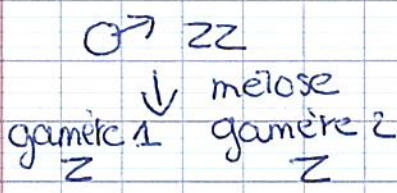 ♂ ZZ
↓ méiose
gamète 1 gamète 2
Z Z